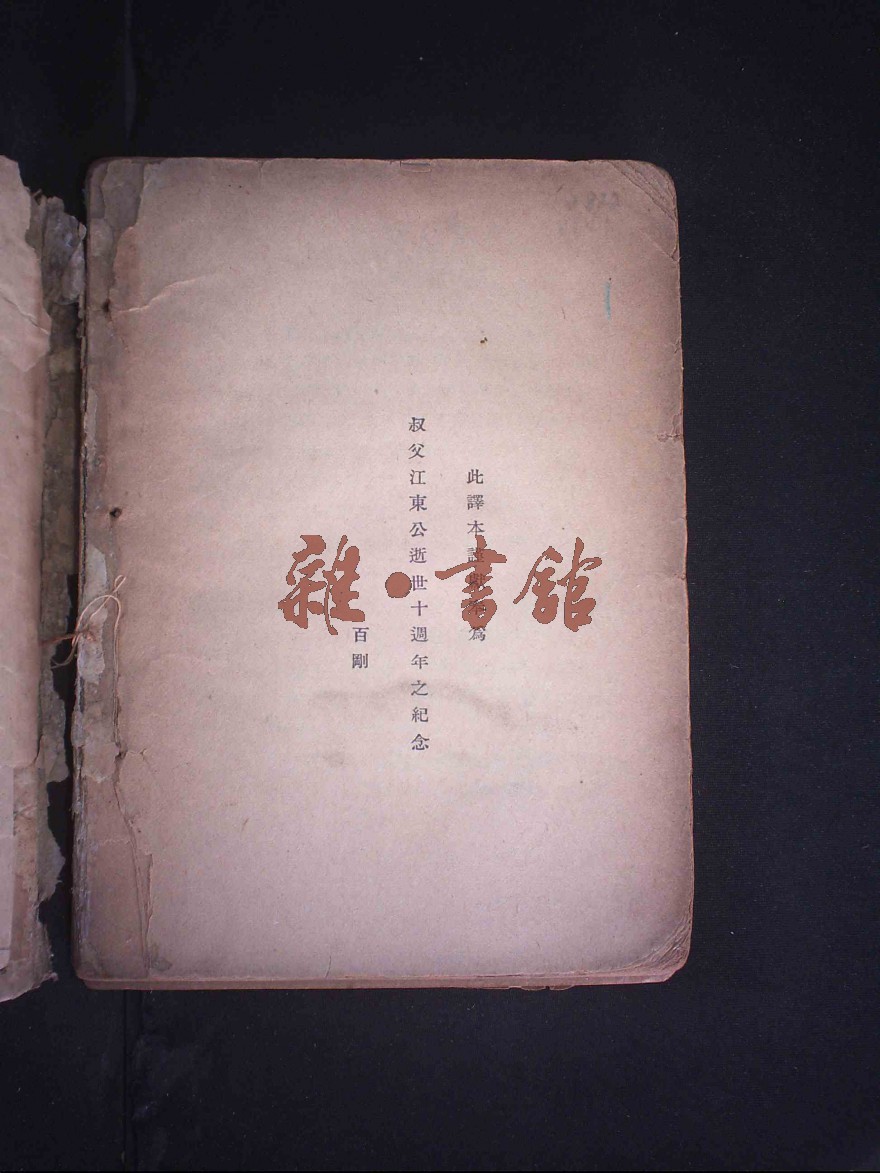 此譯本謹
為
叔父江東公逝世十週年之紀念
百剛
雜·書館